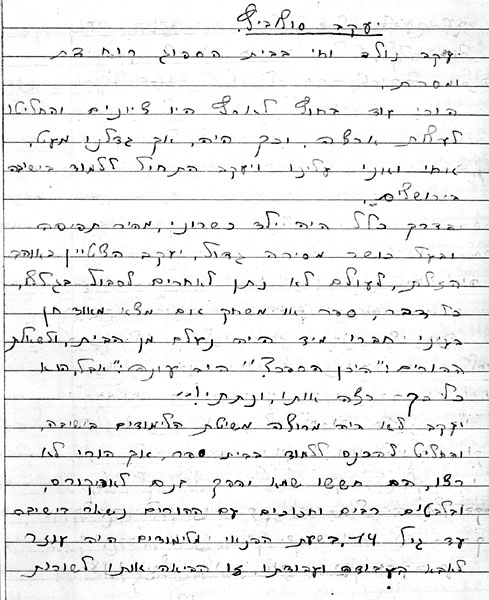 יעקב סולביץ.
יעקב נולד וחי בבית הספוג רוח דת
ומסרת.
הורי עוד בחוץ לארץ היו ציונים והחליטו
לעלות ארצה, וכך היה, אך גדלנו מעט,
אחי ואני עלינו ויעקב התחיל ללמוד בישיבה
בירושלים.
בדרך כלל היה ילד כשרוני, מהיר תפיסה
ובעל כושר מסירה גדול, יעקב הצטיין באוהב
הזולת, לעולם לא נתן לאחרים לסבול בגללו,
כל דבר, ספר או משחק אם מצא מאוד חן
בעיני חברו מיד היה נעלם מן הבית, ולשאלת
ההורים: "היכן הספר?" היה עונה: "אבל, הוא
כל כך רצה אותו, ונתתי!"
יעקב לא היה מרוצה משיטת הלימודים בישיבה,
והחליט להכנס ללמוד בבית ספר, אך הורי לא
רצו, הם חששו שמא יהפך בנם לאפיקורס,
ובלבטים רבים וחזוכים עם ההורים נשאר בישיבה
עד גיל 14, בשעת הפנאי מלימודים היה עוזר
לאבא בעבודה ועבודתו זו הביאה אותו לשורות